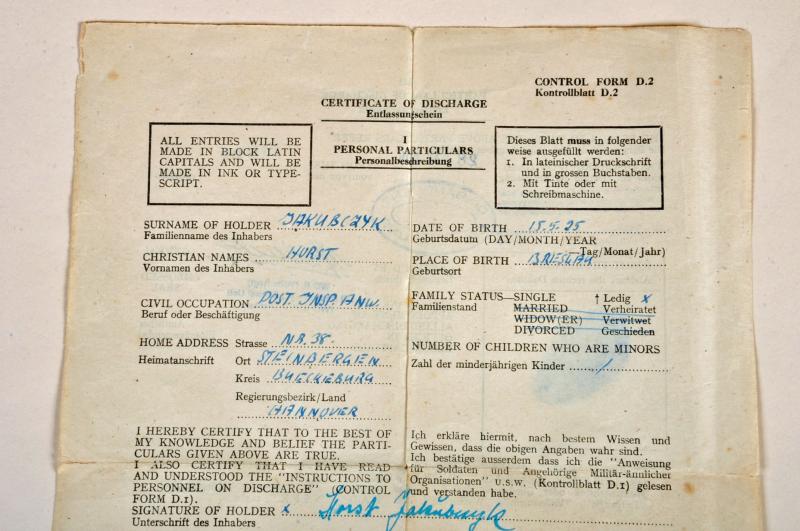 CONTROL FORM D.2
Kontrollblatt D.2
CERTIFICATE OF DISCHARGE
Entlassungschein
I
PERSONAL PARTICULARS
Personalbeschreibung
ALL ENTRIES WILL BE
MADE IN BLOCK LATIN
CAPITALS AND WILL BE
MADE IN INK OR TYPE-
SCRIPT.
Dieses Blatt muss in folgender
weise ausgefüllt werden:
1. In lateinischer Druckschrift
und in grossen Buchstaben.
2. Mit Tinte oder mit
Schreibmaschine.
SURNAME OF HOLDER JAKUBCZYK
Familienname des Inhabers
CHRISTIAN NAMES HORST
Vornamen des Inhabers
CIVIL OCCUPATION POST. INSP. ANW.
Beruf oder Beschäftigung
HOME ADDRESS Strasse NR. 38.
Heimatanschrift Ort STEINBERGEN
Kreis BUECKEBURG
Regierungsbezirk/Land
HANNOVER
DATE OF BIRTH 15.5.25
Geburtsdatum (DAY/MONTH/YEAR
Tag/Monat/Jahr)
PLACE OF BIRTH BRESLAU
Geburtsort
FAMILY STATUS—SINGLE † Ledig x
Familienstand MARRIED Verheiratet
WIDOW(ER) Verwitwet
DIVORCED Geschieden
NUMBER OF CHILDREN WHO ARE MINORS
Zahl der minderjährigen Kinder /
I HEREBY CERTIFY THAT TO THE BEST OF
MY KNOWLEDGE AND BELIEF THE PARTI-
CULARS GIVEN ABOVE ARE TRUE.
I ALSO CERTIFY THAT I HAVE READ
AND UNDERSTOOD THE "INSTRUCTIONS TO
PERSONNEL ON DISCHARGE" (CONTROL
FORM D.1).
SIGNATURE OF HOLDER x Horst Jakubczyk
Unterschrift des Inhabers
Ich erkläre hiermit, nach bestem Wissen und
Gewissen, dass die obigen Angaben wahr sind.
Ich bestätige ausserdem dass ich die "Anweisung
für Soldaten und Angehörige Militär-ähnlicher
Organisationen" u.s.w. (Kontrollblatt D.1) gelesen
und verstanden habe.